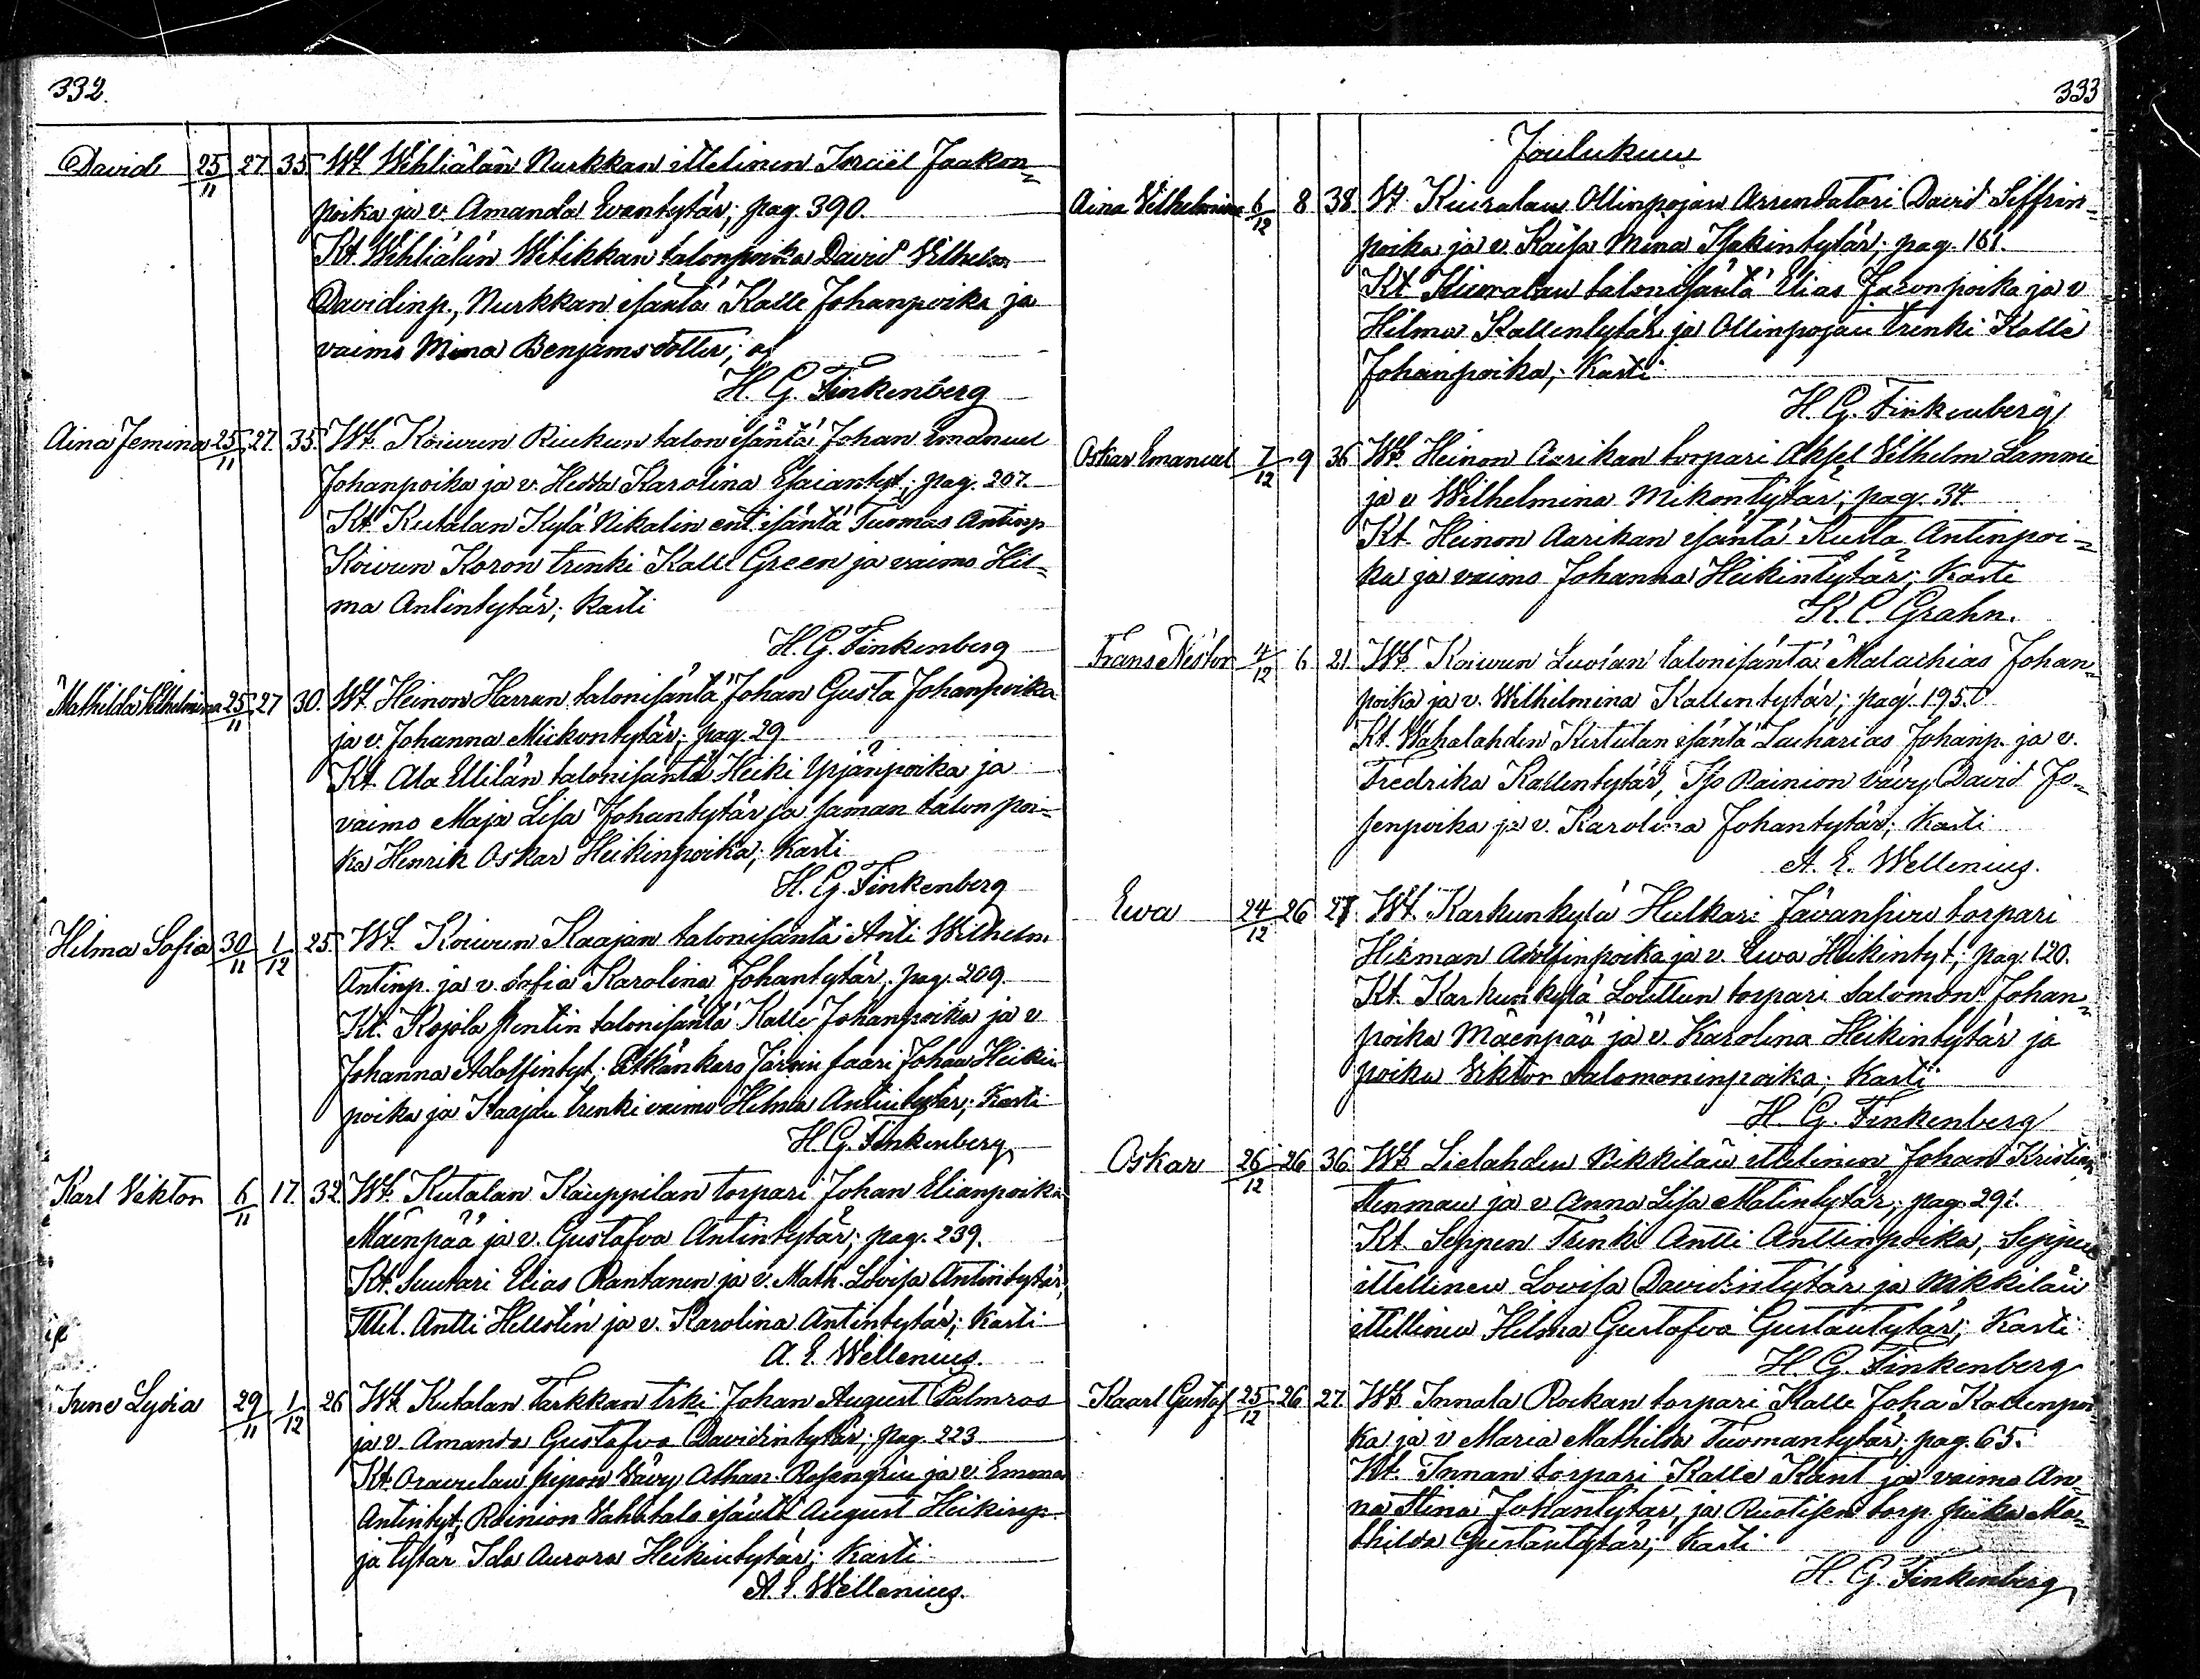 332.
David 25/11 27 35 Wt Wihliälän Nurkkan ittelinen Israel Jaakon=
poika ja v. Amanda Evantytär; pag. 390.
Kt Wihliälän Witikkan talonpoika David Vilhelm
Davidinp., Nurkkan isäntä Kalle Johanpoika ja
vaimo Mina Benjamsdotter;
H. G. Finkenberg
Aina Jemina 25/11 27. 35. Wt. Koivun Riukun talon isäntä Johan Emanuel
Johanpoika ja v. Hedda Karolina Esaiantyt; pag. 207.
Kt. Kutalan Kylä Nikalin ent. isäntä Tuomas Antinp
Koivun Koron trenki Kalle Green ja vaimo Hil=
ma Antintytär; Kasti
H. G. Finkenberg
Mathilda Vilhelmina 25/11 27 30. Wt. Heinon Harran talonisäntä Johan Gusta Johanpoika
ja v. Johanna Mickontytär; pag. 29
Kt. Ala Ullilän talonisäntä Heiki Yrjänpoika ja
vaimo Maja Lisa Johantytär ja saman talon poi=
ka Henrik Oskar Heikinpoika; Kasti
H. G. Finkenberg
Hilma Sofia 30/11 1/12 25. Wt. Koivun Kaajan talonisäntä Anti Wilhelm
Antinp. ja v. Sofia Karolina Johantytär, pag. 209.
Kt. Kojola Pentin talonisäntä Kalle Johanpoika ja v
Johanna Adolfintyt; Järvin faari Johan Heikin
poika ja Kaajan trenki vaimo Hilma Antintytär; Kasti
H. G. Finkenberg
Karl Viktor 6/11 17. 32 Wt. Kutalan Kauppilan torpari Johan Elianpoika
Mäenpää ja v. Gustafva Antintytär; pag. 239.
Kt. Suutari Elias Rantanen ja v. Math. Lovisa Antintytär,
Ittel. Antti Hellstén ja v. Karolina Antintytär; Kasti
A. E. Wellenius.
Irene Lydia 29/11 1/12 26 Wt Kutalan Tarkkan trki Johan August Palmros
ja v. Amanda Gustafva Davidintytär; pag. 223
Kt Oravulan Piipon Vävy Athan. Rosengrén ja v. Emma
Antintyt; Rainion Vahatalo isäntä August Heikinp.
ja tytär Ida Aurora Heikintytär; Kasti
A. E. Wellenius.
333
Joulukuu
Aina Vilhelmina 6/12 8 38. Wt. Kiuralan Ollinpojan Arrendatori David Seffrin=
poika ja v. Kaisa Mina Isakintytär; pag. 161.
Kt Kiuralan talonisäntä Elias Jaconpoika ja v
Hilma Kallentytär ja Ollinpojan trenki Kalle
Johanpoika; Kasti
H. G. Finkenberg
Oskar Emanuel 7/12 9 36 Wt. Heinon Aarikan torpari Aksel Vilhelm Lammi
ja v Wilhelmina Mikontytär; pag. 34.
Kt. Heinon Aarikan isäntä Kusta Antinpoi=
ka ja vaimo Johanna Heikintytär; Kasti
K. C. Grahn.
Frans Nestor 4/12 6 21 Wt. Koivun Luoian talonisäntä Malachias Johan=
poika ja v. Wilhelmina Kallentytär; pag. 195.
Kt. Wahalahden Kirtulan isäntä Zacharias Johanp. ja v.
Fredrika Kallentytär, Iso Rainion vävy David Jo=
senpoika ja v. Karolina Johantytär; Kasti
A. E. Wellenius.
Ewa 24/12 26 27. Wt. Karkunkylä Hulkari Jävänsivu torpari
Herman Adolfinpoika ja v. Ewa Heikintyt; pag. 120.
Kt. Karkunkylä Lauttun torpari Salomon Johan=
poika Mäenpää ja v. Karolina Heikintytär ja
poika Viktor Salomoninpoika; Kasti
H. G. Finkenberg
Oskar 26/12 26 36 Wt Lielahden Nikkilän ittelinen Johan Kristian
Stenman ja v Anna Lisa Matintytär; pag. 291.
Kt Seppen Trenki Antti Anttinpoika, Seppen
ittellinen Lovisa Davidintytär ja Nikkilän
ittellinen Hilma Gustafva Gustantytär; Kasti
H. G. Finkenberg
Kaarl Gustaf 25/12 26 27. Wt. Innala Rockan torpari Kalle Joha Kallenpoi=
ka ja v Maria Mathilda Tuomantytär; pag. 65.
Kt. Innan torpari Kalle Kant ja vaimo An=
na Stina Johantytär, ja Ruotisen torp. piika Ma=
thilda Gustantytär; Kasti
H. G. Finkenberg